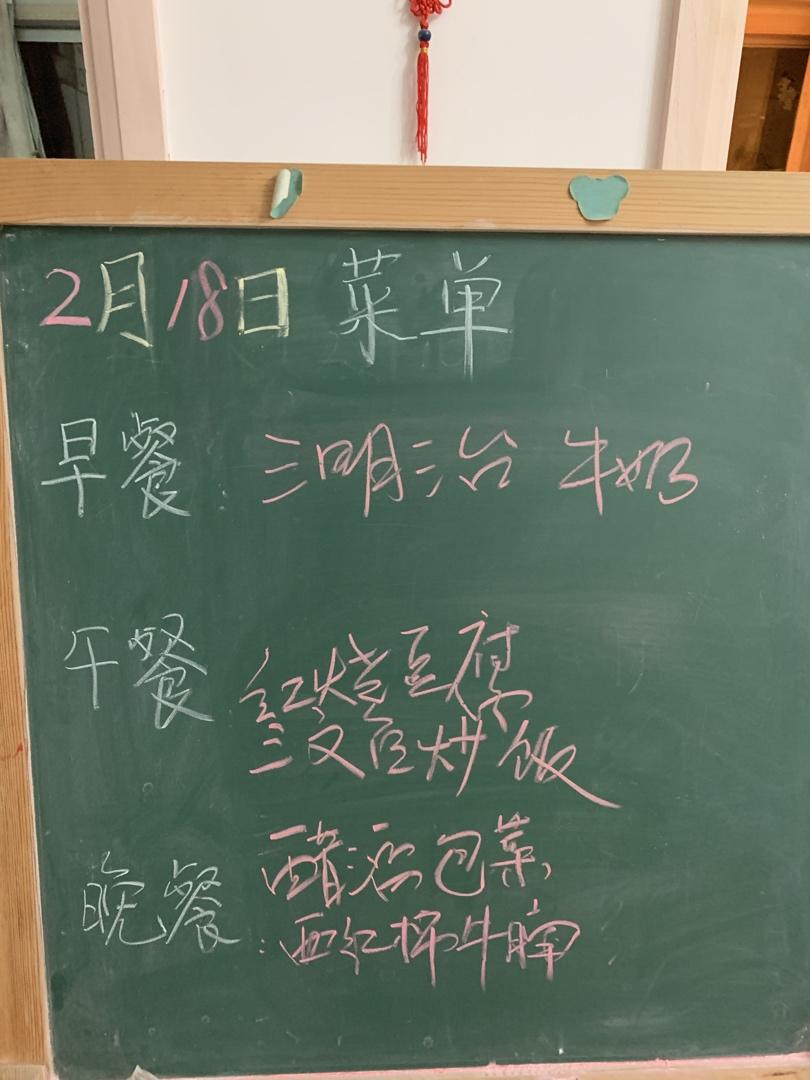 2月18日 菜单
早餐: 三明治 牛奶
午餐 红烧豆腐
三文鱼炒饭
晚餐: 醋溜包菜
西红柿牛腩